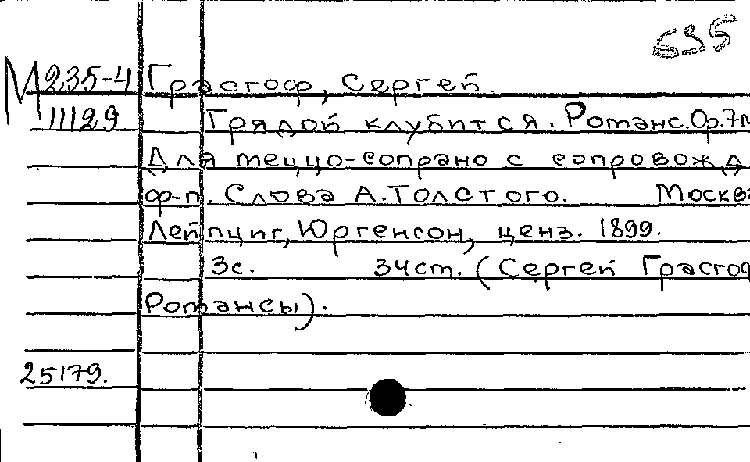 635
М 235-4 Грасгоф, Сергей.
11129 Грядой клубится. Романс. Ор.7
Для меццо-сопрано с сопровожд
ф-п. Слова А.Толстого. Москва
Лейпциг, Юргенсон, ценз. 1899.
3с. 34см. (Сергей Грасгоф
Романсы).
25179.